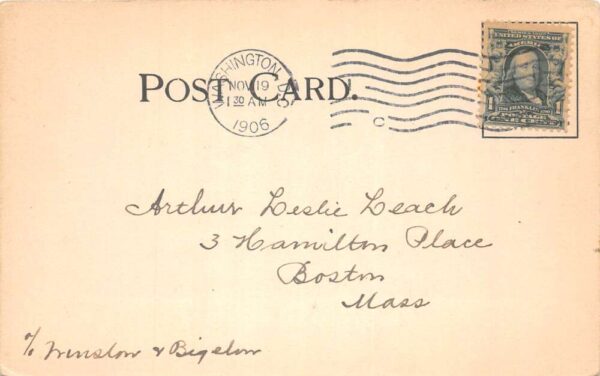 POST CARD.
WASHINGTON, D.C.
NOV 19
1 30 AM
1906
C
UNITED STATES OF AMERICA
1 1
FRANKLIN
POSTAGE
Arthur Leslie Leach
3 Hamilton Place
Boston
Mass
c/o Winslow & Bigelow